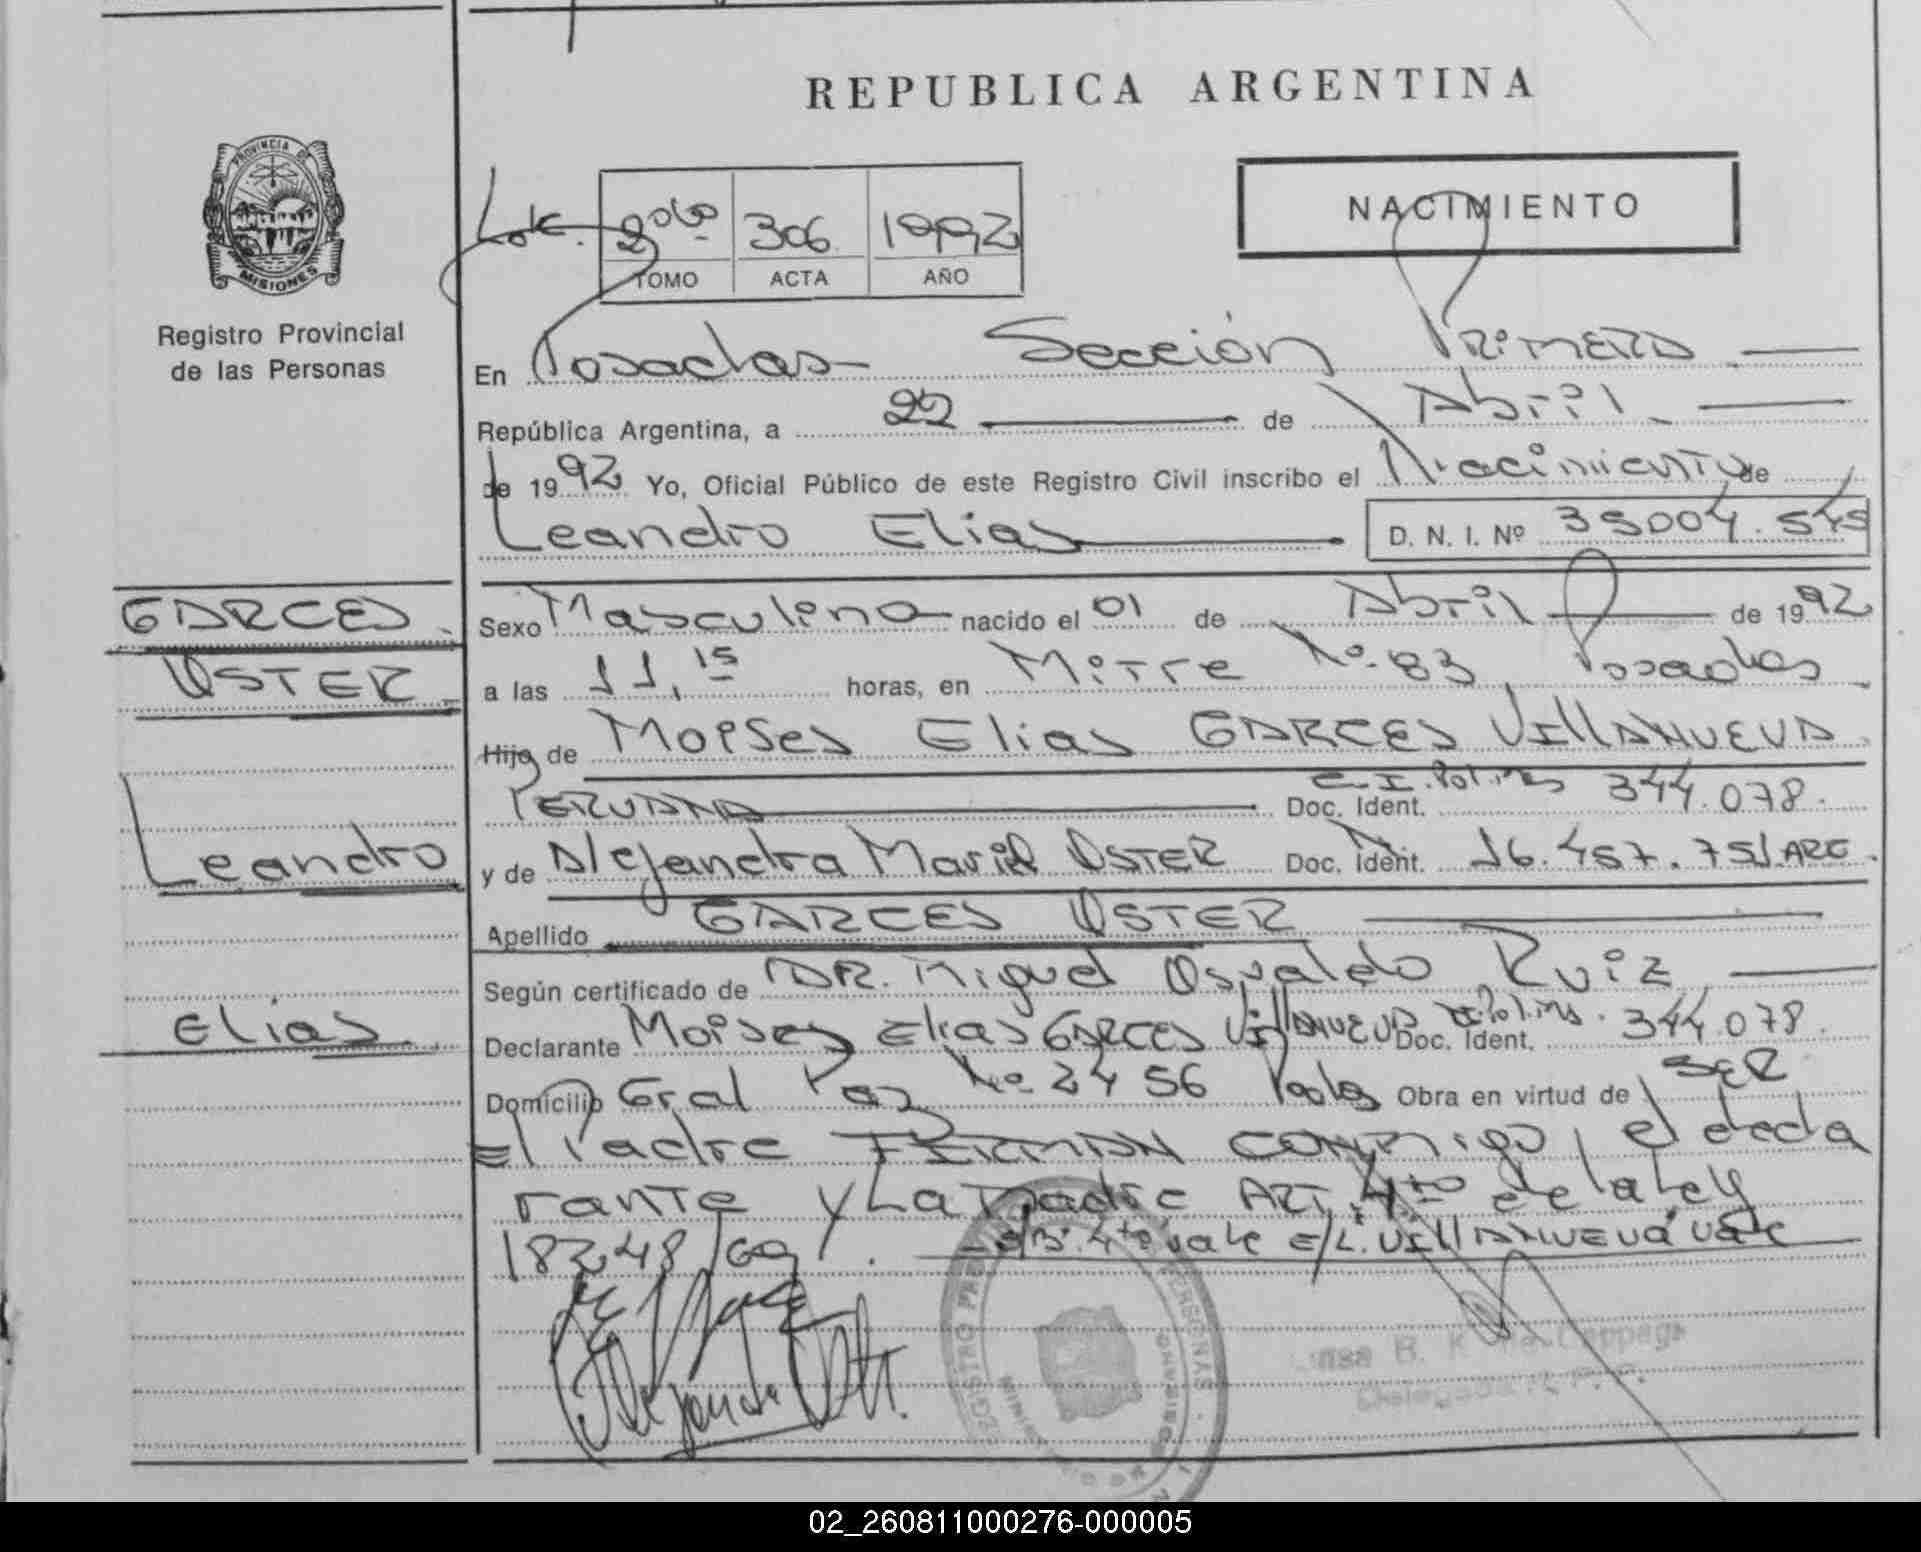 REPUBLICA ARGENTINA
PROVINCIA DE
MISIONES
Registro Provincial
de las Personas
NACIMIENTO
2do 306 1992
TOMO ACTA AÑO
En Posadas Sección Primera
República Argentina, a 22 de Abril
de 1992 Yo, Oficial Público de este Registro Civil inscribo el Nacimiento de
Leandro Elias D. N. I. Nº 35004.545
GARCES
OSTER
Leandro
Elias
Sexo Masculino nacido el 01 de Abril de 1992
a las 11,15 horas, en Mitre No. 83 Posadas
Hijo de Moises Elias GARCES VILLANUEVA
PERUANA Doc. Ident. C.I.Pol.Ms 344.078.
y de Alejandra Maria OSTER Doc. Ident. 16.457.751 ARG.
Apellido GARCES OSTER
Según certificado de DR. Miguel Osvaldo Ruiz
Declarante Moises Elias GARCES VILLANUEVA Doc. Ident. Pol.Ms. 344.078.
Domicilio Gral Paz No 2456 Pdas Obra en virtud de SER
El Padre FIRMAN conmigo, el decla
rante y La Madre ART. 4to de la Ley
18248/69. 4to vale E/L. VILLANUEVA vale
REGISTRO PERSONAS
Delegada
02_260811000276-000005